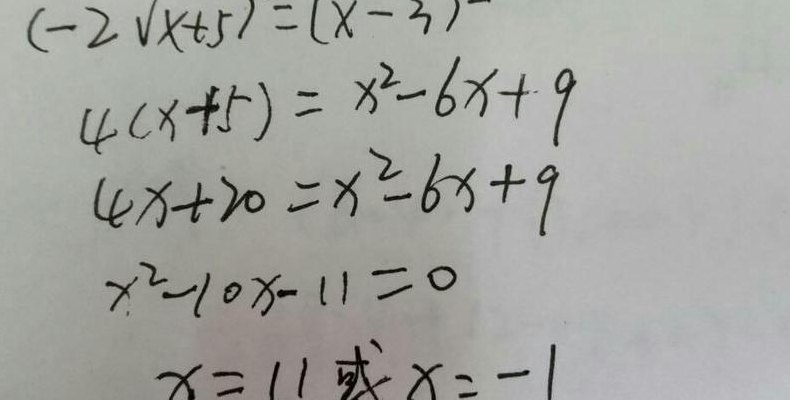 (-2√x+5) = (x-3)²
4(x+5) = x²-6x+9
4x+20 = x²-6x+9
x²-10x-11=0
x=11或x=-1